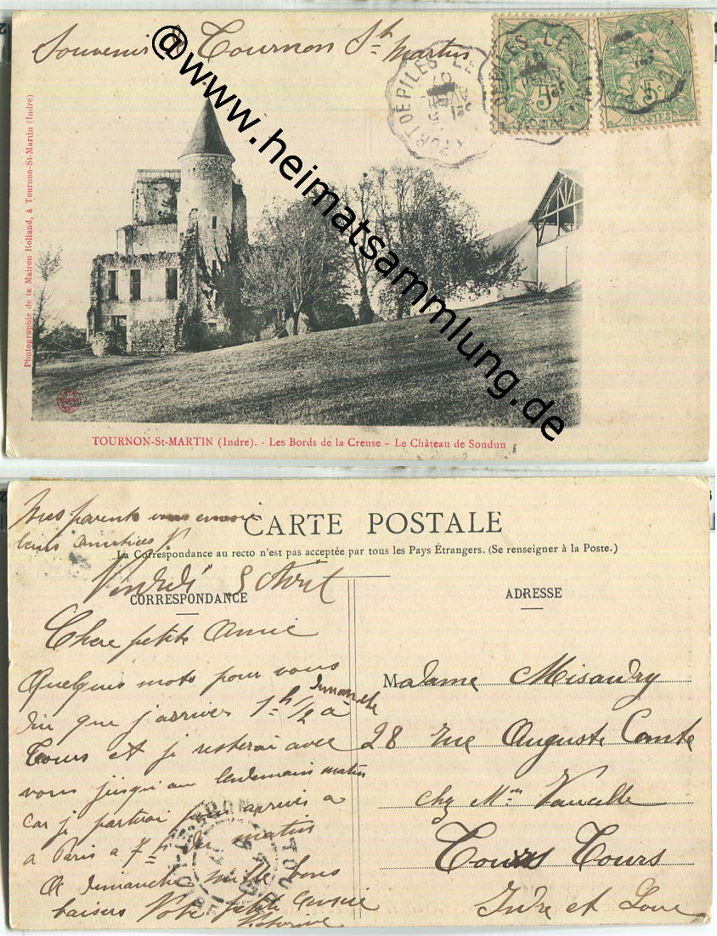 Souvenir de Tournon St Martin
PORT DE PILES - LE
PORT DE PILES - LE
5c
POSTES
5c
POSTES
www.heimatsammlung.de
Photographie de la Maison Rolland, à Tournon-St-Martin (Indre)
TOURNON-St-MARTIN (Indre). - Les Bords de la Creuse - Le Château de Soudun
Mes parents vous envoie
leurs amitiés V
CARTE POSTALE
La Correspondance au recto n'est pas acceptée par tous les Pays Étrangers. (Se renseigner à la Poste.)
Vendredi 5 Avril
CORRESPONDANCE
Chere petite Amie
Quelques mots pour vous
dire que j'arrive dimanche 1h 1/2 a
Tours et je resterai avec
vous jusqu'au lendemain matin
car je partirai pour arrivé a
a Paris a 7h du matin
A dimanche mille bons
baisers Votre petite amie
ADRESSE
Madame Misandry
28 rue Auguste Comte
chez Mme Vaucelle
Tours Tours
Indre et Loire